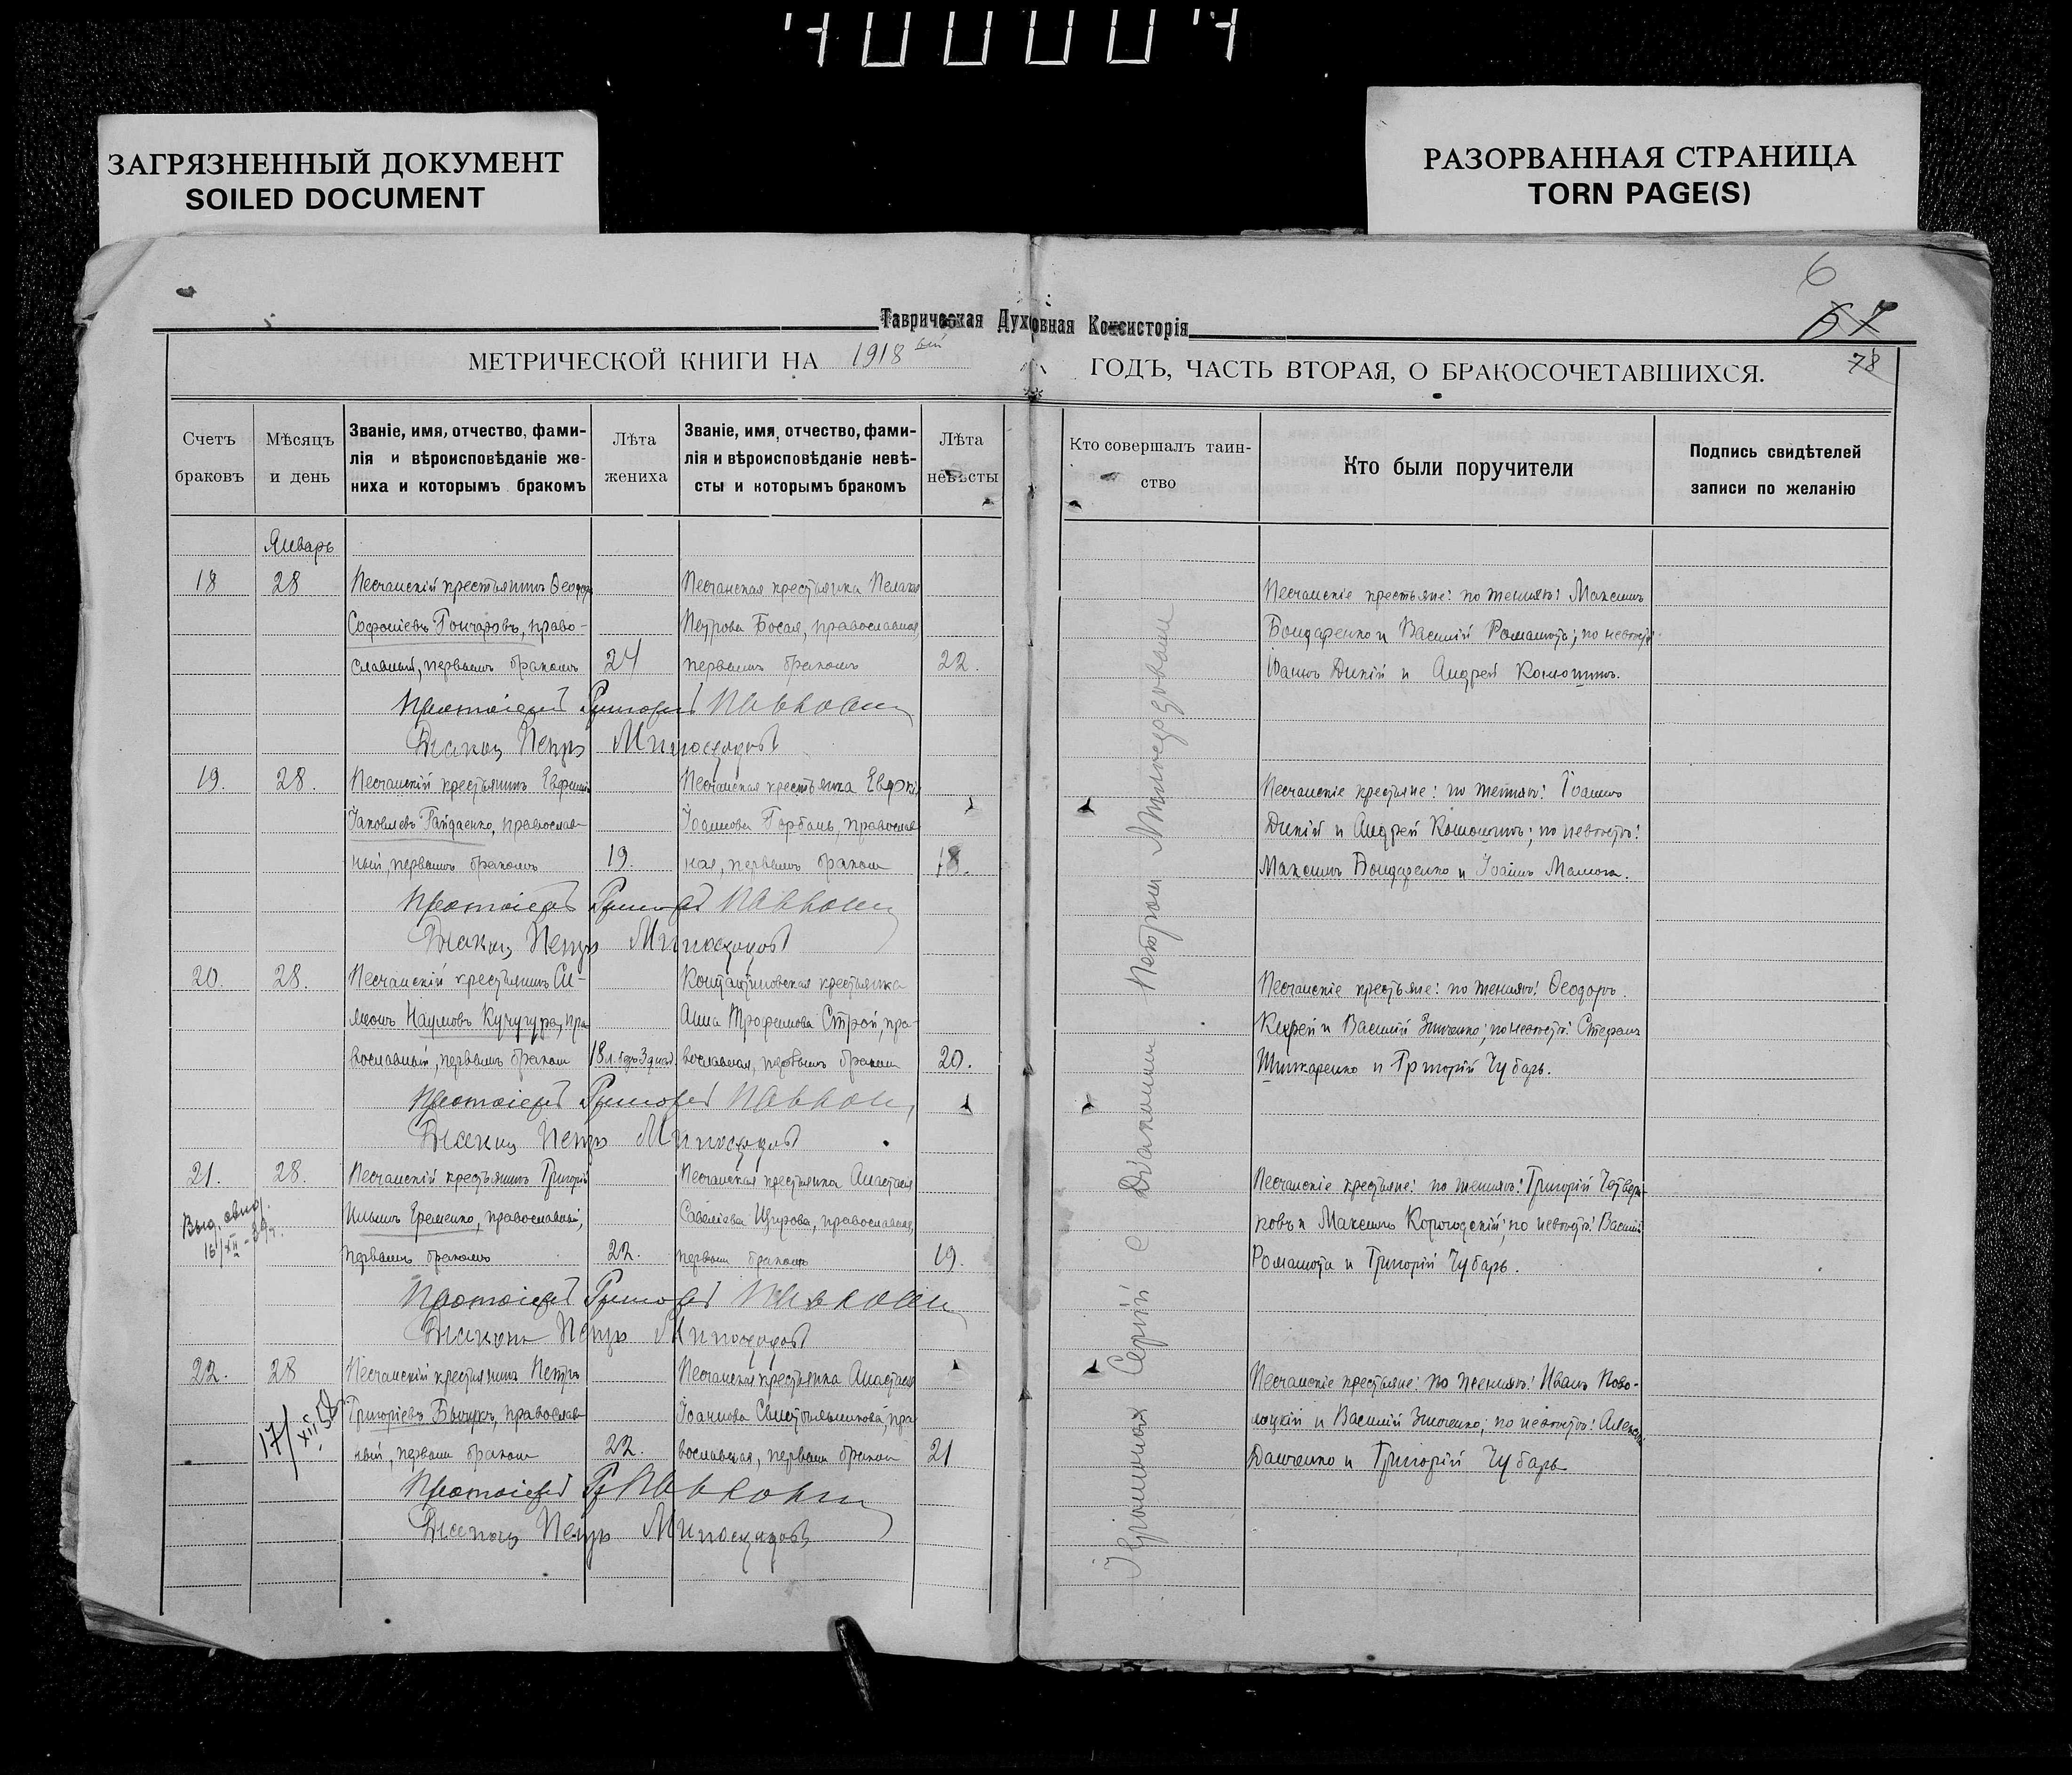 ЗАГРЯЗНЕННЫЙ ДОКУМЕНТ
SOILED DOCUMENT
РАЗОРВАННАЯ СТРАНИЦА
TORN PAGE(S)
6
Таврическая Духовная Консисторія
78
МЕТРИЧЕСКОЙ КНИГИ НА 1918 ый ГОДЪ, ЧАСТЬ ВТОРАЯ, О БРАКОСОЧЕТАВШИХСЯ.
Счетъ браковъ
Мѣсяцъ и день
Званіе, имя, отчество, фами-
лія и вѣроисповѣданіе же-
ниха и которымъ бракомъ
Лѣта жениха
Званіе, имя, отчество, фами-
лія и вѣроисповѣданіе невѣ-
сты и которымъ бракомъ
Лѣта невѣсты
Кто совершалъ таин-
ство
Кто были поручители
Подпись свидѣтелей
записи по желанію
Январь
18
28
Песчанскій крестьянинъ Ѳеодоръ
Софоніевъ Гончаровъ, право-
славный, первымъ бракомъ
24
Песчанская крестьянка Пелагія
Петрова Босая, православная,
первымъ бракомъ
22.
Песчанскіе крестьяне: по женихѣ: Максимъ
Бондаренко и Василій по невѣстѣ
Іоаннъ Дикій и Андрей
Протоіерей Григорій
Діаконъ Петръ Милосердовъ
19.
28.
Песчанскій крестьянинъ Евфимій
Іаковлевъ Гайдаенко, православ-
ный, первымъ бракомъ
19.
Песчанская крестьянка
Іоаннова Горбань, православ-
ная, первымъ бракомъ
18.
Песчанскіе крестьяне: по женихѣ: Іоаннъ
Дикій и Андрей по невѣстѣ:
Максимъ Бондаренко и Іоаннъ
Протоіерей Григорій
Діаконъ Петръ Милосердовъ
20.
28.
Песчанскій крестьянинъ Си-
меонъ Наумовъ Кучугура, пра-
вославный, первымъ бракомъ
Константиновская крестьянка
Анна Трофимова Строй, пра-
вославная, первымъ бракомъ
20.
Песчанскіе крестьяне: по женихѣ: Ѳеодоръ
и Василій Зинченко; по невѣстѣ: Стефанъ
и Григорій Чубарь.
Протоіерей Григорій
Діаконъ Петръ Милосердовъ
21.
28.
Песчанскій крестьянинъ Григорій
Ильинъ Еременко, православный,
первымъ бракомъ
22.
Песчанская крестьянка Анастасія
Савеліева православная,
первымъ бракомъ
19.
Песчанскіе крестьяне: по женихѣ: Григорій Четвери-
ковъ и Максимъ Корогодскій; по невѣстѣ: Василій
и Григорій Чубарь.
Протоіерей Григорій
Діаконъ Петръ Милосердовъ
22.
28
Песчанскій крестьянинъ Петръ
Григоріевъ православ-
ный, первымъ бракомъ
22.
Песчанская крестьянка Анастасія
Іоаннова Свистильникова, пра-
вославная, первымъ бракомъ
21
Песчанскіе крестьяне: по женихѣ: Иванъ
и Василій Зинченко; по невѣстѣ: Алексѣй
Данченко и Григорій Чубарь
Протоіерей
Діаконъ Петръ Милосердовъ
Іеромонахъ Сергій с Діакономъ Петромъ Милосердовымъ